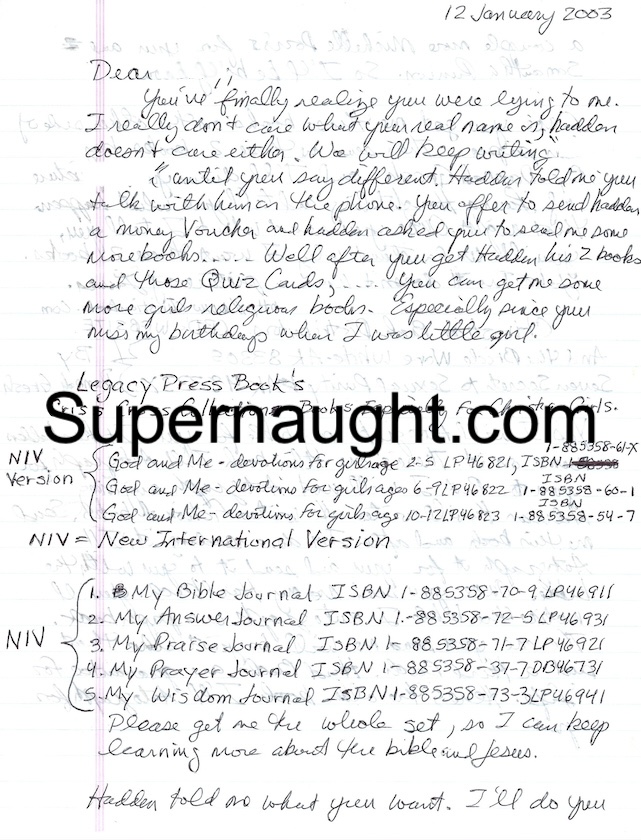 12 January 2003
Dear ,,
You've finally realize you were lying to me.
I really don't care what your real name is, hadden
doesn't care either. We will keep writing
until you say different. Hadden told me you
talk with him on the phone. You offer to send hadden
a money Voucher and hadden asked you to send me some
more books..... Well after you get Hadden his 2 books
and those Quiz Cards,..... You can get me some
more girls religious books. Especially since you
miss my birthdays when I was little girl.
Legacy Press Book's
Criss Cross Collection Books Especially For Christian Girls.
Supernaught.com
1-885358-61-X
NIV Version
God and Me - devotions for girls age 2-5 LP46821, ISBN
ISBN
God and Me - devotions for girls ages 6-9 LP46822 1-885358-60-1
ISBN
God and Me - devotions for girls age 10-12 LP46823 1-885358-54-7
NIV = New International Version
NIV
1. My Bible Journal ISBN 1-885358-70-9 LP46911
2. My Answer Journal ISBN 1-885358-72-5 LP46931
3. My Praise Journal ISBN 1-885358-71-7 LP46921
4. My Prayer Journal ISBN 1-885358-37-7 DB46731
5. My Wisdom Journal ISBN 1-885358-73-3 LP46941
Please get me the whole set, so I can keep
learning more about the bible and Jesus.
Hadden told me what you want. I'll do you